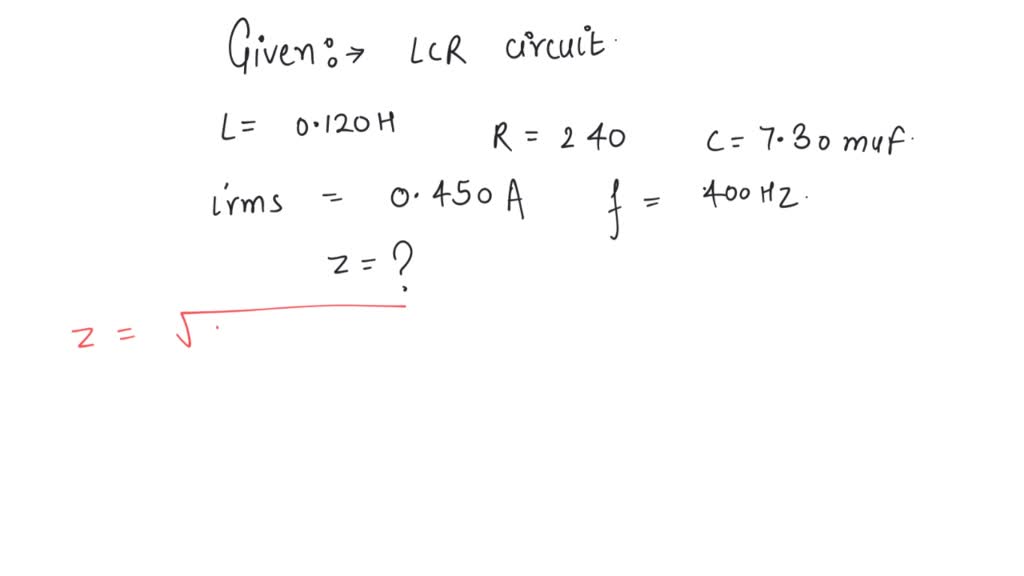 Given:→ LCR circuit.
L = 0.120 H R = 240 C = 7.30 muf.
irms = 0.450 A f = 400 HZ.
z = ?
z = √